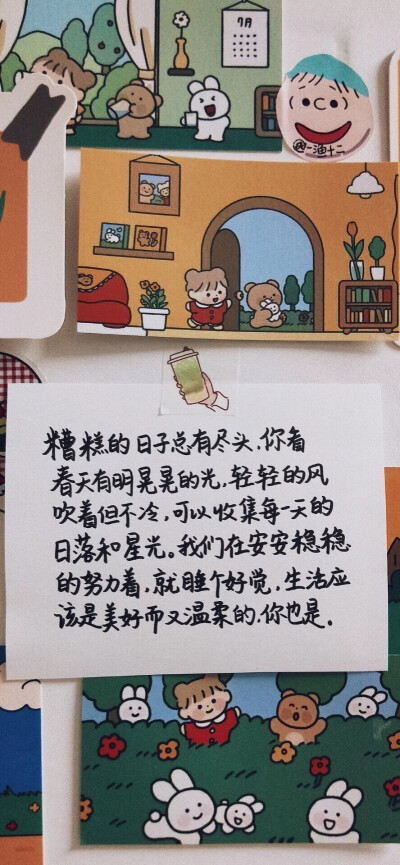 7月
@一渔十二
糟糕的日子总有尽头,你看
春天有明晃晃的光,轻轻的风
吹着但不冷,可以收集每一天的
日落和星光。我们在安安稳稳
的努力着,就睡个好觉,生活应
该是美好而又温柔的,你也是。